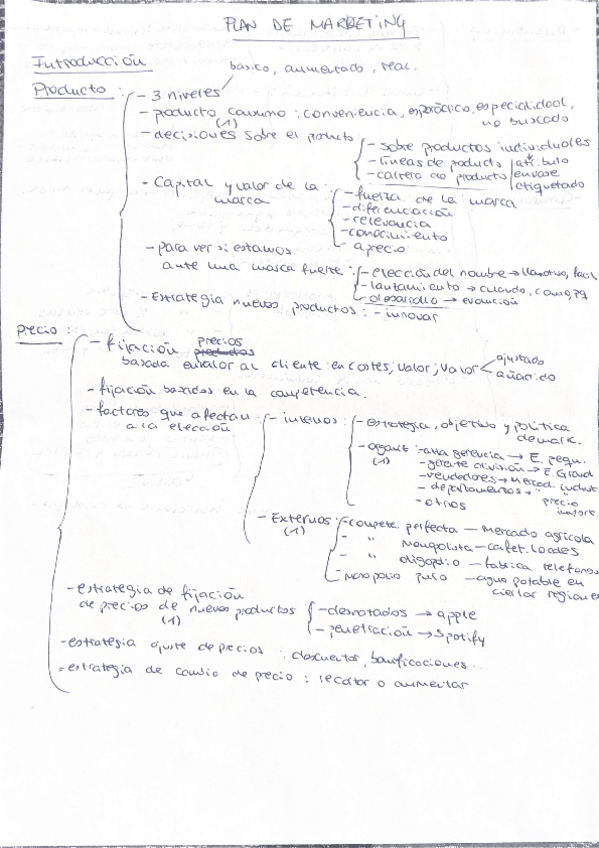 PLAN DE MARKETING
Introducción
básico, aumentado, real.
Producto: - 3 niveles
- producto consumo: conveniencia, esporádico, especialidad,
(1) no buscado
- decisiones sobre el producto
- sobre productos individuales
- líneas de producto | atributo
- cartera de producto | envase
etiquetado
- Capital y valor de la
marca
- fuerza de la marca
- diferenciación
- relevancia
- conocimiento
- aprecio
- para ver si estamos
ante una marca fuerte: - elección del nombre → llamativo, fácil
- lanzamiento → cuando, como,
- desarrollo → evolución
- Estrategia nuevos productos: - innovar
precio:
- fijación precios
productos
basada en valor al cliente: en costes, valor, valor
ajustado
añadido
- fijación basados en la competencia.
- factores que afectan
a la elección
- internos: - estrategia, objetivo y política
de mark.
- organiz: - alta gerencia → E. pequ.
(1) - gerente división → E. Grand
- vendedores → Mercad. indust
- departamentos → " precio
import.
- otros
- Externos: - compete. perfecta - Mercado agrícola
(1) - " - cafet. locales
- " oligoplio - fabrica telefonos
- Monopolio puro - agua potable en
ciertas regiones
- estrategia de fijación
de precios de nuevos productos
(1)
- desnatados → apple
- penetración → Spotify
- estrategia ajuste de precios: descuentos, bonificaciones...
- estrategia de cambio de precio: recortar o aumentar